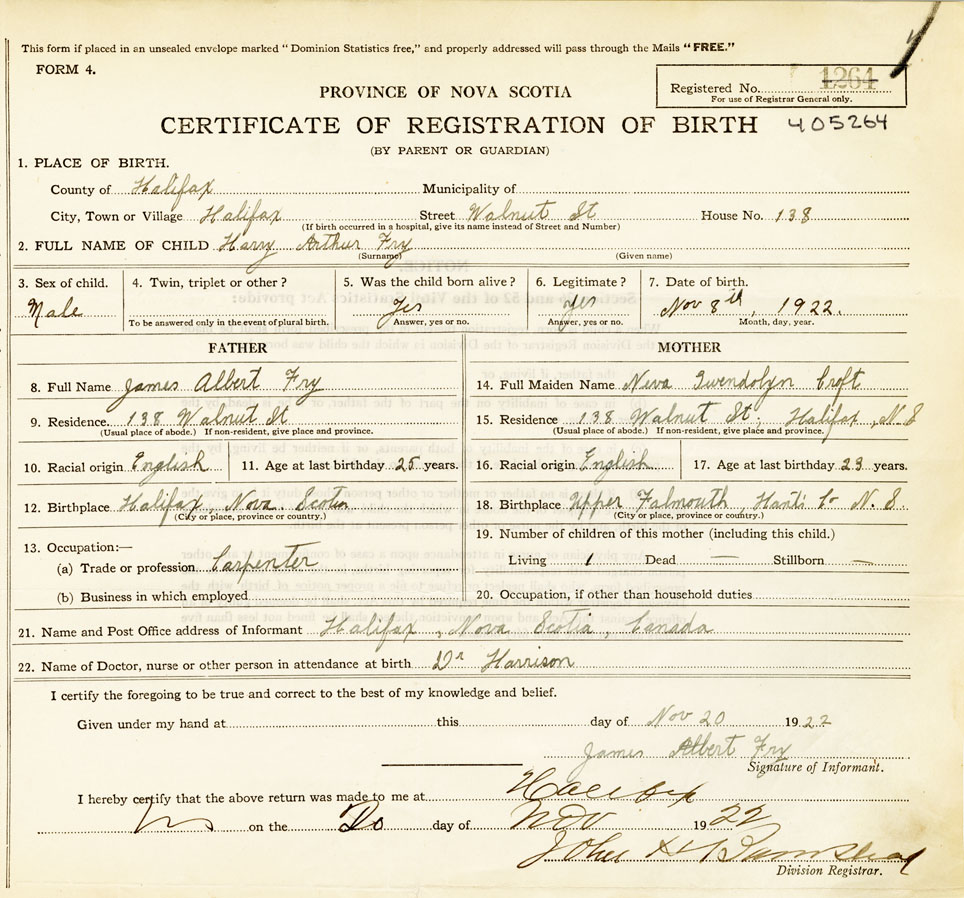 This form if placed in an unsealed envelope marked "Dominion Statistics free," and properly addressed will pass through the Mails "FREE."
FORM 4.
Registered No. 1264
For use of Registrar General only.
PROVINCE OF NOVA SCOTIA
CERTIFICATE OF REGISTRATION OF BIRTH 405264
(BY PARENT OR GUARDIAN)
1. PLACE OF BIRTH.
County of Halifax Municipality of
City, Town or Village Halifax Street Walnut St House No. 138
(If birth occurred in a hospital, give its name instead of Street and Number)
2. FULL NAME OF CHILD Harry Arthur Fry
(Surname) (Given name)
3. Sex of child. 4. Twin, triplet or other? 5. Was the child born alive? 6. Legitimate? 7. Date of birth.
Male Yes Yes Nov 8th, 1922.
To be answered only in the event of plural birth. Answer, yes or no. Answer, yes or no. Month, day, year.
FATHER
8. Full Name James Albert Fry
9. Residence. 138 Walnut St
(Usual place of abode.) If non-resident, give place and province.
10. Racial origin English 11. Age at last birthday 25 years.
12. Birthplace Halifax, Nova Scotia
(City or place, province or country.)
13. Occupation:—
(a) Trade or profession Carpenter
(b) Business in which employed
MOTHER
14. Full Maiden Name Neva Gwendolyn Croft
15. Residence 138 Walnut St, Halifax, N.S
(Usual place of abode.) If non-resident, give place and province.
16. Racial origin English 17. Age at last birthday 23 years.
18. Birthplace Upper Falmouth, Hants Co N. S.
(City or place, province or country.)
19. Number of children of this mother (including this child.)
Living 1 Dead — Stillborn —
20. Occupation, if other than household duties
21. Name and Post Office address of Informant Halifax, Nova Scotia, Canada
22. Name of Doctor, nurse or other person in attendance at birth Dr Harrison
I certify the foregoing to be true and correct to the best of my knowledge and belief.
Given under my hand at this day of Nov 20 1922
James Albert Fry
Signature of Informant.
I hereby certify that the above return was made to me at Halifax
on the 20 day of Nov 1922
John H
Division Registrar.